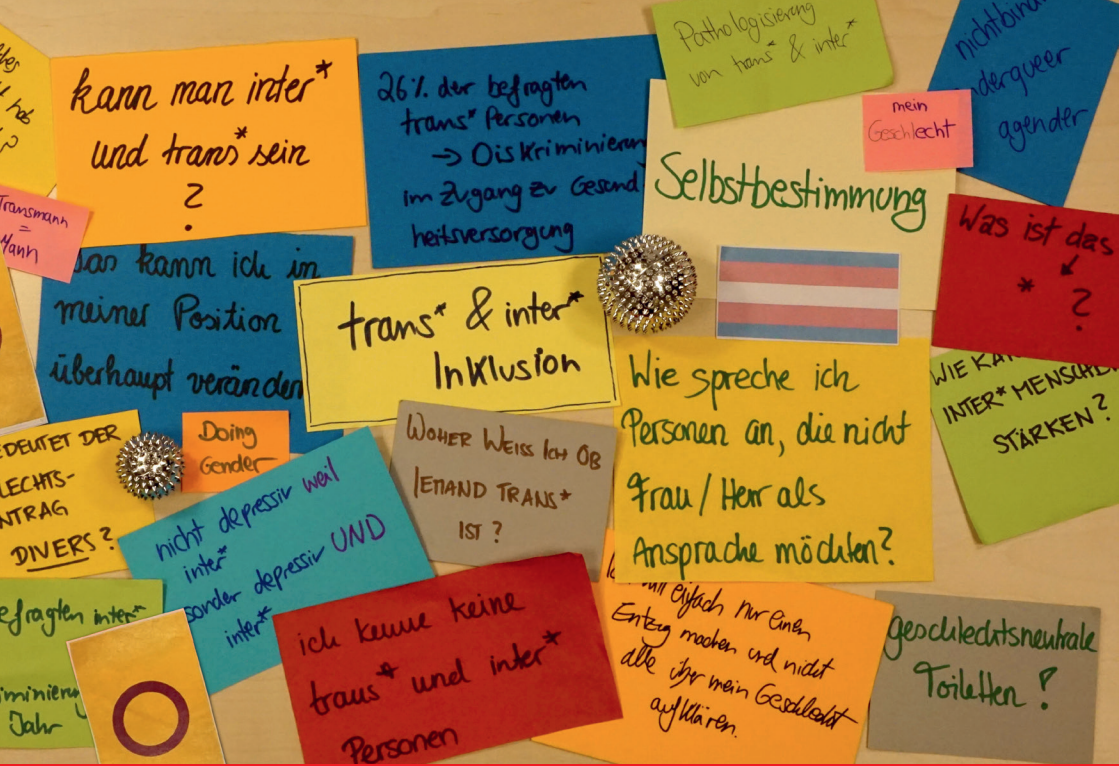 kann man inter*
und trans* sein
?
26% der befragten
trans* Personen
→ Diskriminierun
im Zugang zu Gesund
heitsversorgung
Pathologisierung
von trans* & inter*
nichtbinä
nderqueer
agender
mein
Geschlecht
Selbstbestimmung
Was ist das
* ?
Transmann
=
Mann
Was kann ich in
meiner Position
überhaupt verändern
trans* & inter*
Inklusion
Wie spreche ich
Personen an, die nicht
Frau/Herr als
Ansprache möchten?
WIE KA
INTER* MENSCHE
STÄRKEN?
EDEUTET DER
LECHTS-
NTRAG
DIVERS?
Doing
Gender
nicht depressiv weil
inter*
sonder depressiv UND
inter*
WOHER WEISS ICH OB
JEMAND TRANS*
IST?
efragten inter*
iminierun
Jahr
ich kenne keine
trans* und inter*
Personen
will einfach nur einen
Entzug machen und nicht
alle über mein Geschlecht
aufklären.
geschlechtsneutrale
Toiletten!